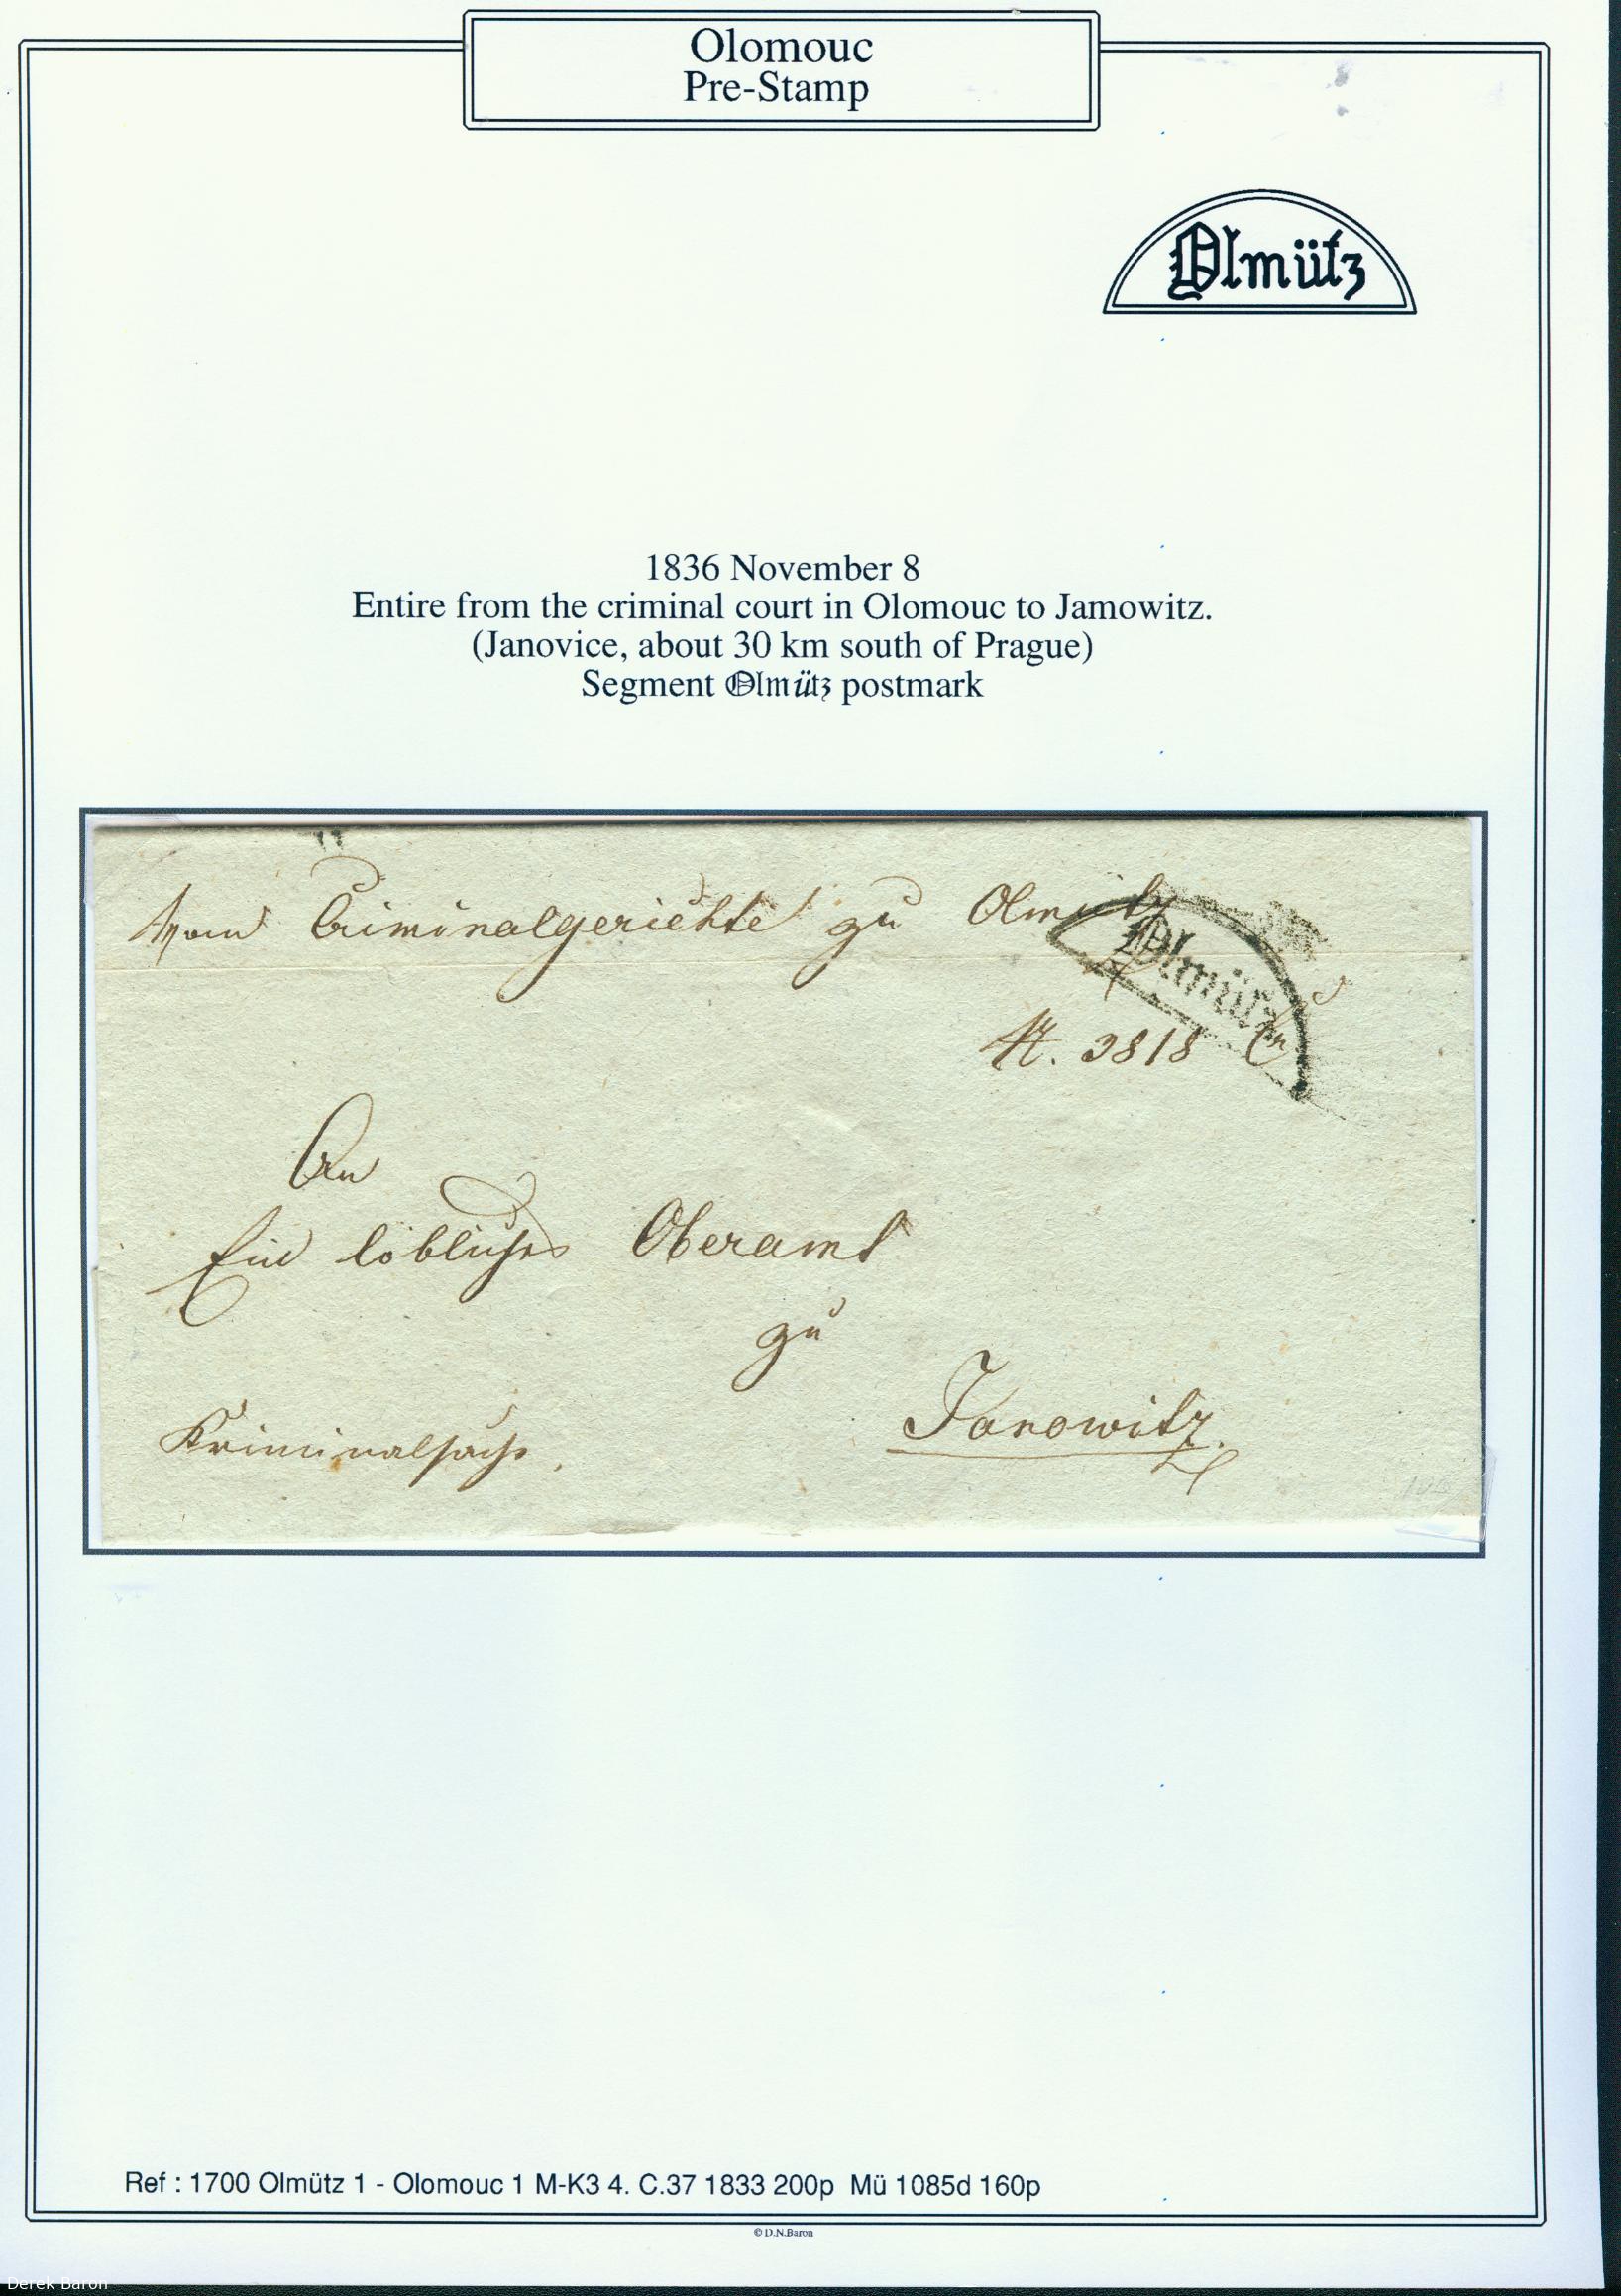 Olomouc
Pre-Stamp
Olmütz
1836 November 8
Entire from the criminal court in Olomouc to Jamowitz.
(Janovice, about 30 km south of Prague)
Segment Olmütz postmark
Vom Criminalgerichte zu Olmütz
Olmütz
N. 3818
An
Ein löbliches Oberamt
zu
Janowitz.
Kriminalsache.
Ref : 1700 Olmütz 1 - Olomouc 1 M-K3 4. C.37 1833 200p Mü 1085d 160p
© D.N.Baron
Derek Baron